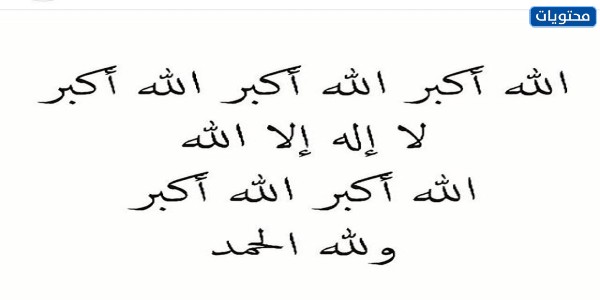 محتويات
الله أكبر الله أكبر الله أكبر
لا إله إلا الله
الله أكبر الله أكبر
ولله الحمد